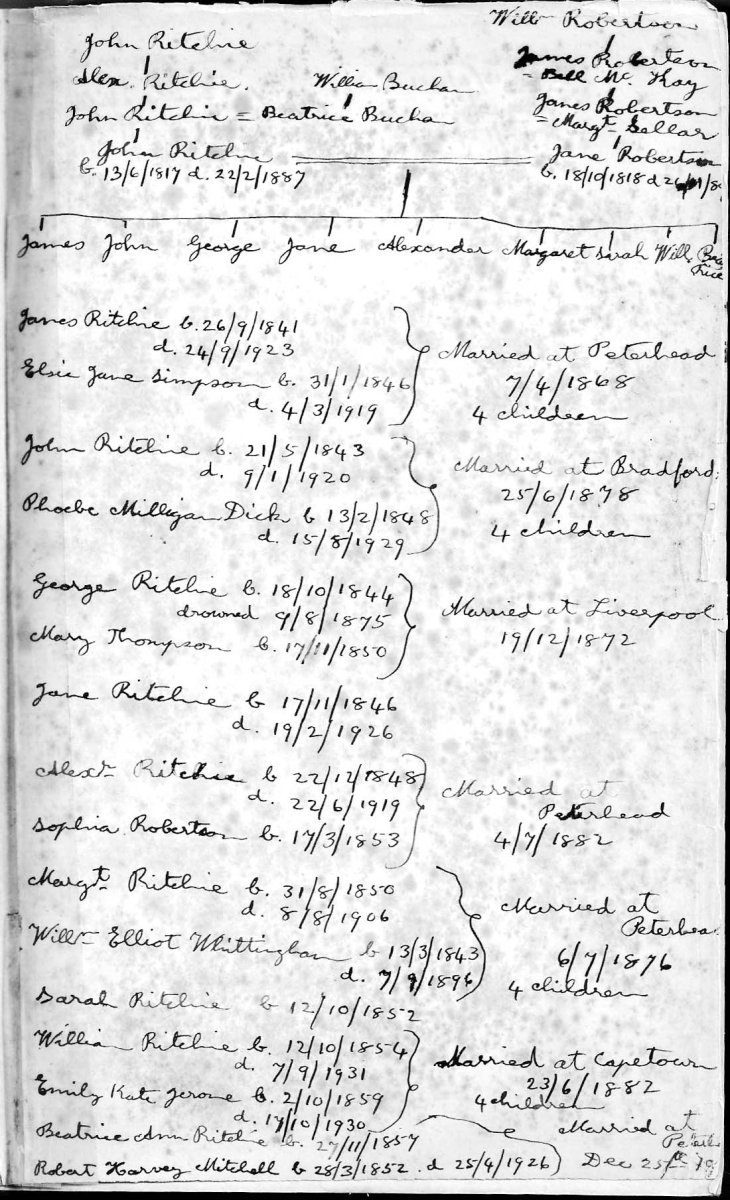 Willm Robertson
John Ritchie
James Robertson
= Bell Mc Kay
Alex. Ritchie. William Buchan
James Robertson
= Margt Sellar
John Ritchie = Beatrice Buchan
John Ritchie Jane Robertson
b. 13/6/1817 d. 22/2/1887 b. 18/10/1818 d
James John George Jane Alexander Margaret Sarah Will. Bea
trice
James Ritchie b. 26/9/1841
d. 24/9/1923
Married at Peterhead
Elsie Jane Simpson b. 31/1/1846
7/4/1868
d. 4/3/1919
4 children
John Ritchie b. 21/5/1843
d. 9/1/1920
Married at Bradford.
25/6/1878
Phoebe Milligan Dick b 13/2/1848
d. 15/8/1929
4 children
George Ritchie b. 18/10/1844
drowned 9/8/1875
Married at Liverpool
19/12/1872
Mary Thompson b. 17/11/1850
Jane Ritchie b 17/11/1846
d. 19/2/1926
Alexr Ritchie b 22/12/1848
d. 22/6/1919
Married at
Peterhead
Sophia Robertson b. 17/3/1853
4/7/1882
Margt Ritchie b. 31/8/1850
d. 8/8/1906
Married at
Peterhea
Willm Elliot Whittingham b 13/3/1843
6/7/1876
d. 7/9/1896
4 children
Sarah Ritchie b 12/10/1852
William Ritchie b. 12/10/1854
d. 7/9/1931
Married at Capetown
23/6/1882
Emily Kate Jerome b. 2/10/1859
4 children
d. 17/10/1930
Married at
Beatrice Ann Ritchie b. 27/11/1857
Robert Harvey Mitchell b 28/3/1852 d 25/4/1926 Dec 25th